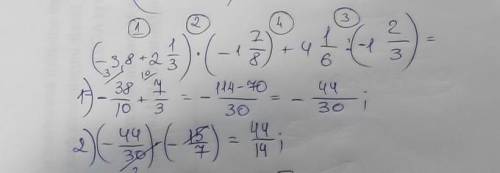 ① ② ④ ③
(-3,8 + 2 1/3) · (-1 7/8) + 4 1/6 : (-1 2/3) =
1) - 38/10 + 7/3 = - 114-70/30 = - 44/30 ;
2) (- 44/30) · (- 15/7) = 44/14 ;